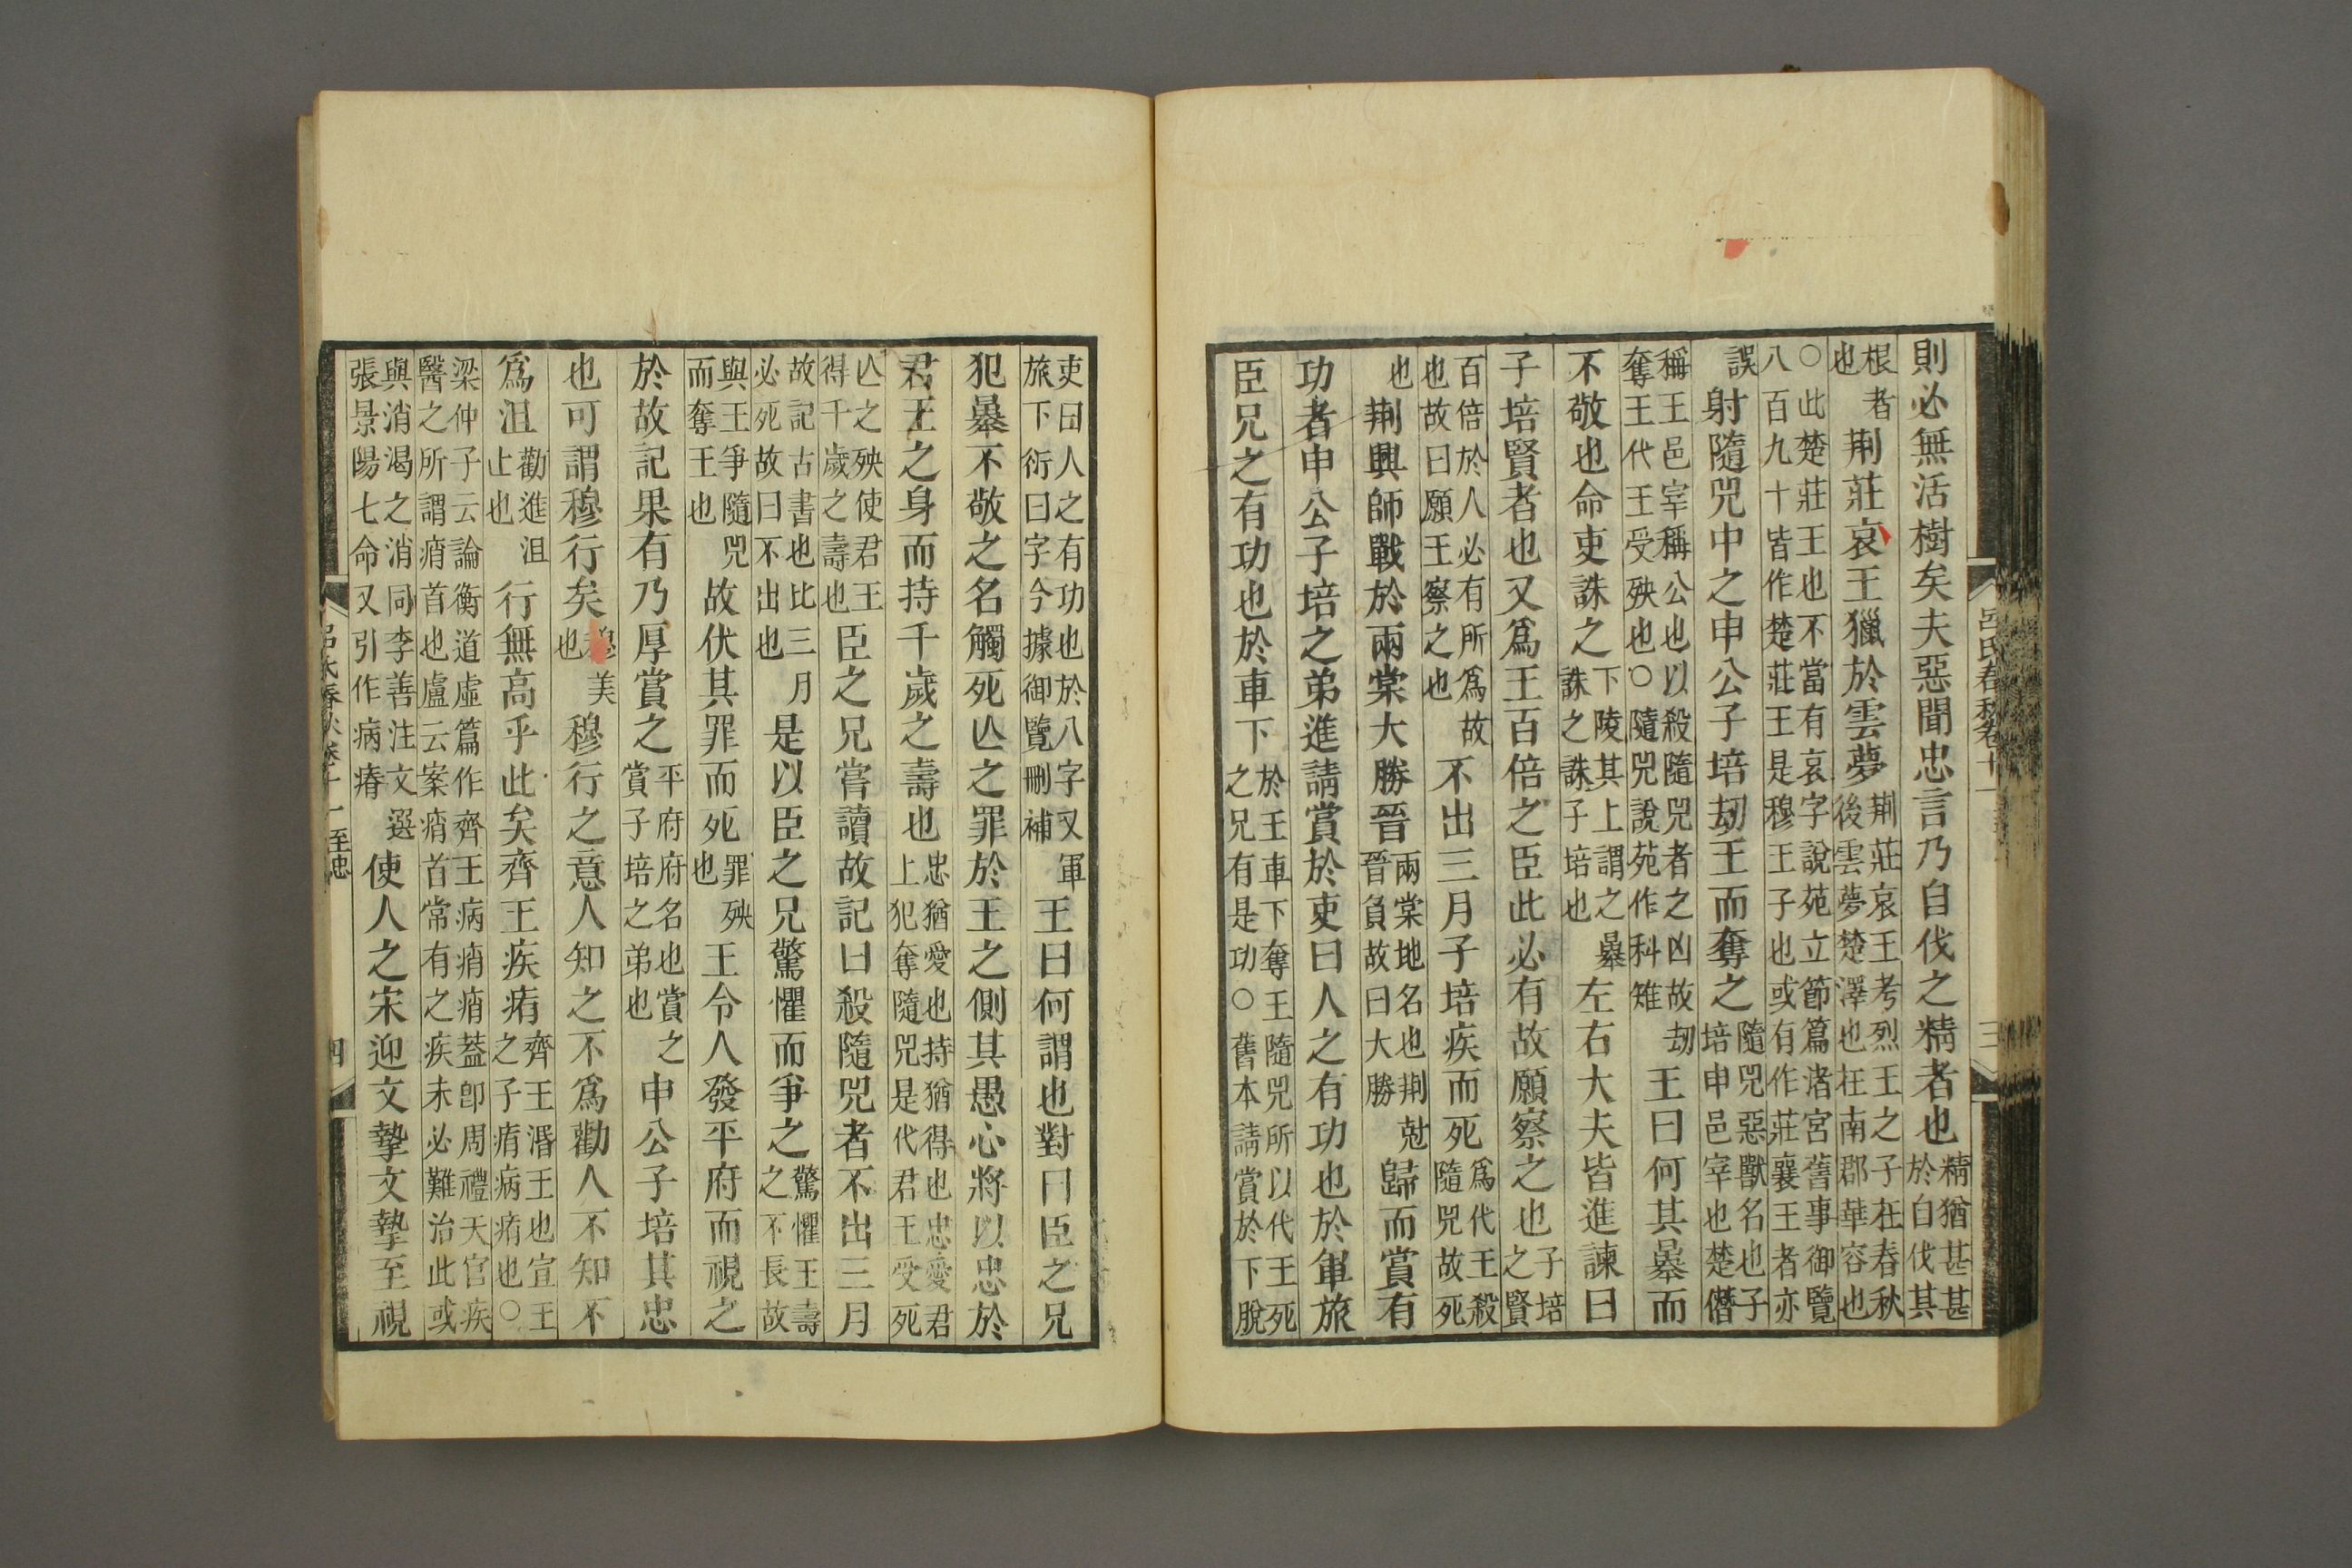 呂氏春秋卷十一
三
則必無活樹矣夫惡聞忠言乃自伐之精者也精猶甚甚於自伐其
根者也荆莊哀王獵於雲夢荆莊哀王考烈王之子在春秋後雲夢楚澤也在南郡華容也
○此楚莊王也不當有哀字說苑立節篇渚宮舊事御覽八百九十皆作楚莊王是穆王子也或有作莊襄王者亦
誤射隨兕中之申公子培刧王而奪之隨兕惡獸名也子培申邑宰也楚僭
稱王邑宰稱公也以殺隨兕者之凶故刧奪王代王受殃也○隨兕說苑作科雉王曰何其暴而
不敬也命吏誅之下陵其上謂之暴誅之誅子培也左右大夫皆進諫曰
子培賢者也又爲王百倍之臣此必有故願察之也子培之賢
百倍於人必有所爲故也故曰願王察之也不出三月子培疾而死爲代王殺隨兕故死
也荆興師戰於兩棠大勝晉兩棠地名也荆尅晉負故曰大勝歸而賞有
功者申公子培之弟進請賞於吏曰人之有功也於軍旅
臣兄之有功也於車下於王車下奪王隨兕所以代王死之兄有是功○舊本請賞於下脫
吏曰人之有功也於八字又軍旅下衍曰字今據御覽刪補王曰何謂也對曰臣之兄
犯暴不敬之名觸死亾之罪於王之側其愚心將以忠於
君王之身而持千歲之壽也忠猶愛也持猶得也忠愛君上犯奪隨兕是代君王受死
亾之殃使君王得千歲之壽也臣之兄嘗讀故記曰殺隨兕者不出三月
故記古書也比三月必死故曰不出也是以臣之兄驚懼而爭之驚懼王壽之不長故
與王爭隨兕而奪王也故伏其罪而死罪殃也王令人發平府而視之
於故記果有乃厚賞之平府府名也賞之賞子培之弟也申公子培其忠
也可謂穆行矣穆美也穆行之意人知之不爲勸人不知不
爲沮勸進沮止也行無高乎此矣齊王疾痏齊王湣王也宣王之子痏病痏也○
梁仲子云論衡道虛篇作齊王病痟痟蓋卽周禮天官疾醫之所謂痟首也盧云案痟首常有之疾未必難治此或
與消渴之消同李善注文選張景陽七命又引作病瘠使人之宋迎文摯文摯至視
呂氏春秋卷十一 至忠
四